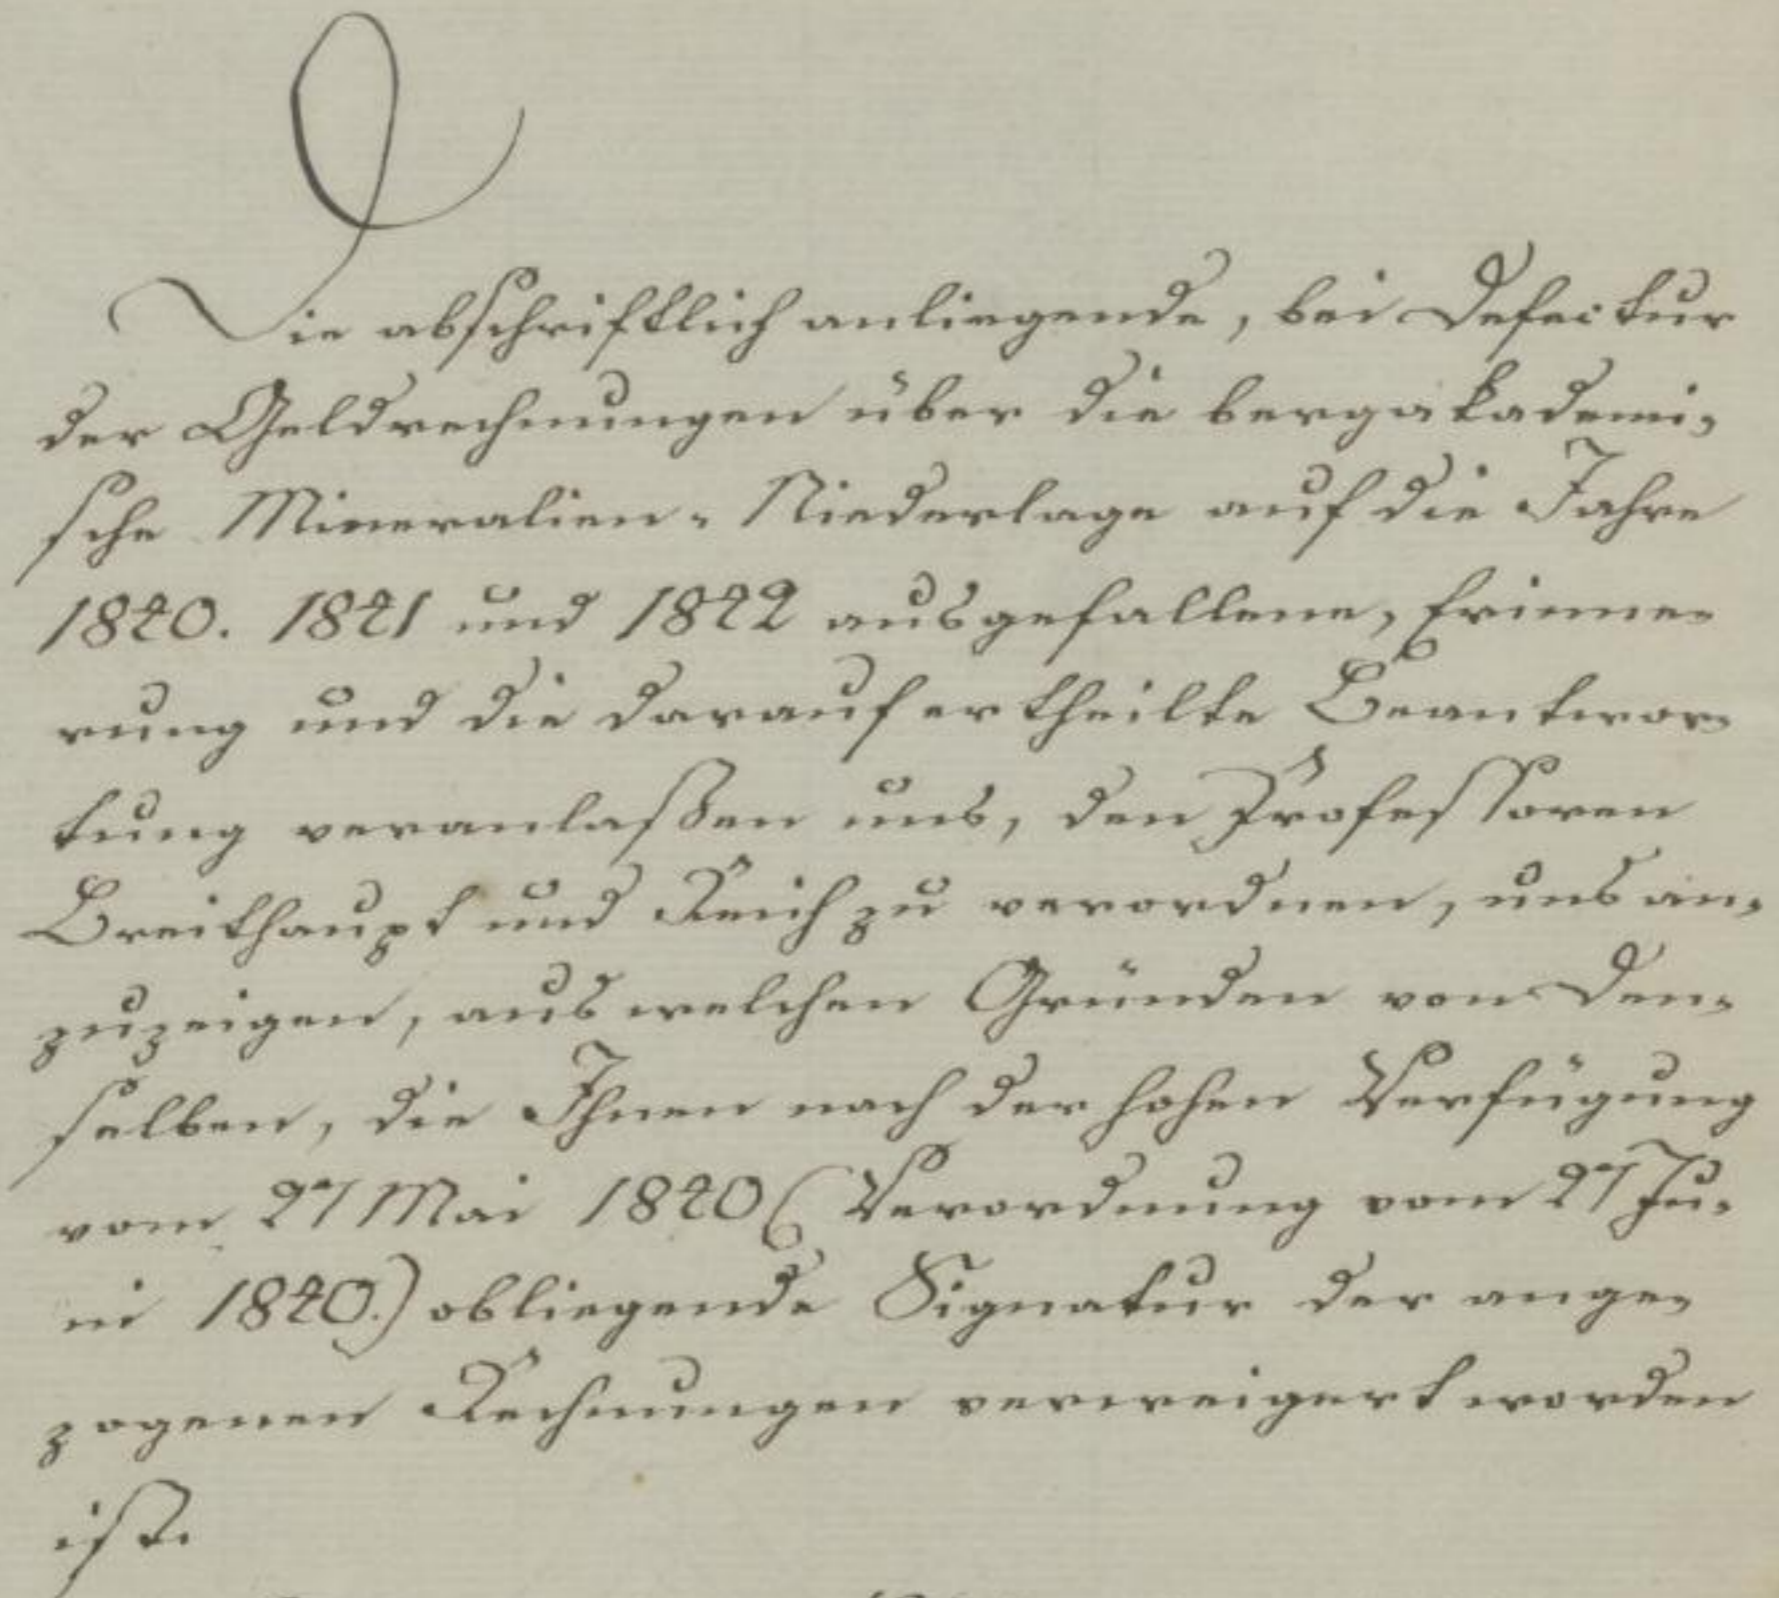 Die abschriftlich anliegende, bei Defectur
der Geldrechnungen über die bergakademi-
sche Mineralien-Niederlage auf die Jahre
1820. 1821 und 1822 ausgefallene, Erinne-
rung und die darauf ertheilte Beantwor-
tung veranlaßen uns, den Professoren
Breithaupt und Reich zu verordnen, uns an-
zuzeigen, aus welchen Gründen von Den-
selben, die Ihnen nach der hohen Verfügung
vom 27 Mai 1820 (Verordnung vom 27 Ju-
ni 1820.) obliegende Signatur der ange-
zogenen Rechnungen verweigert worden
ist.